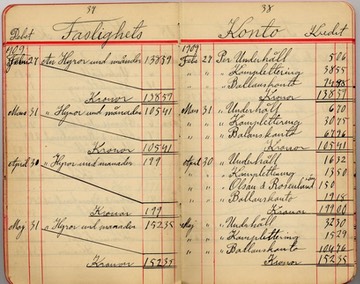 37
Debet Fastighets
1909
Febr 27 ator Hyror und månader 138 59
Kronor 138 59
Mars 31 " Hyror und månader 105 41
Kronor 105 41
April 30 " Hyror und månader 199
Kronor 199
Maj 31 " Hyror und månader 152 35
Kronor 152 35
38
Konto Kredit
1909
Feb 27 Per Underhåll 5 06
" " " Komplettering 38 55
" " " Ballanskonto 
Kronor 138 59
Mars 31 " Underhåll 6 70
" " " Komplettering 30 75
" " " Ballanskonto 67 96
Kronor 105 41
April 30 " Underhåll 16 32
" " " Komplettering 13 50
" " " Olsau & Rosenlund 150
" " " Ballanskonto 19 18
Kronor 199 00
Maj " Underhåll 32 30
" " " Komplettering 15 29
" " " Ballanskonto 104 76
Kronor 152 35